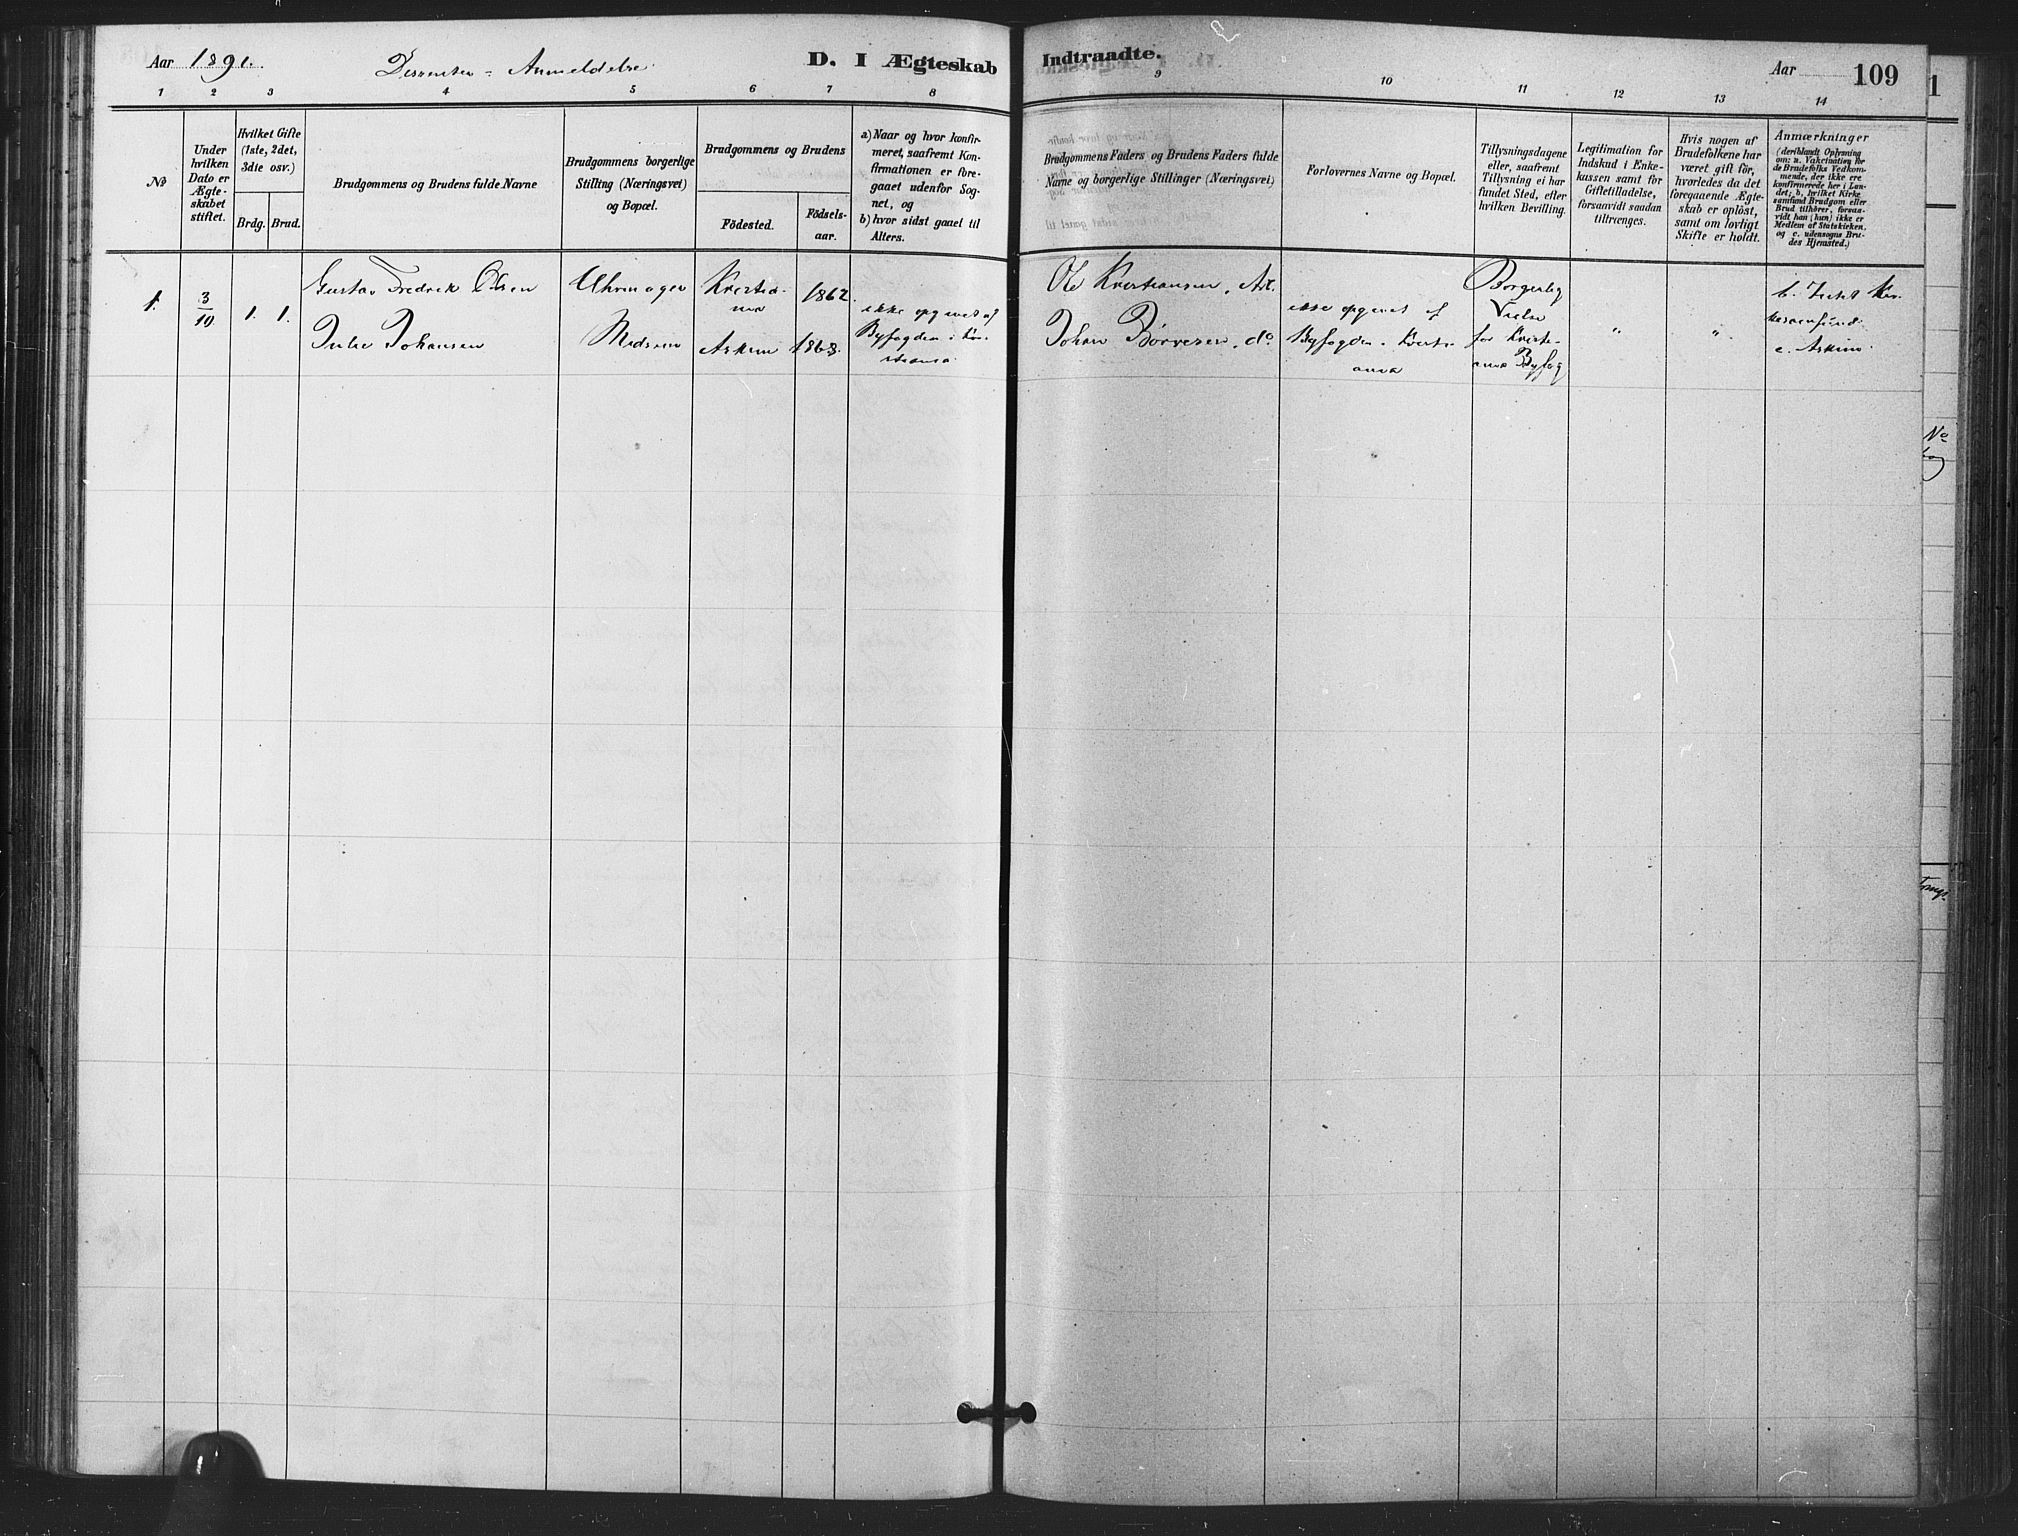 Aar 1891.
Dissenter-Anmeldelse.
D. I Ægteskab Indtraadte.
Aar
109
1 2 3 4 5 6 7 8 9 10 11 12 13 14
No
Under
hvilken
Dato er
Ægte-
skabet
stiftet.
Hvilket Gifte
(1ste, 2det,
3die osv.)
Brdg. Brud.
Brudgommens og Brudens fulde Navne
Brudgommens borgerlige
Stilling (Næringsvei)
og Bopæl.
Brudgommens og Brudens
Födested.
Födsels-
aar.
a) Naar og hvor konfir-
meret, saafremt Kon-
firmationen er fore-
gaaet udenfor Sog-
net, og
b) hvor sidst gaaet til
Alters.
Brudgommens Faders og Brudens Faders fulde
Navne og borgerlige Stillinger (Næringsvei)
Forlovernes Navne og Bopæl.
Tillysningsdagene
eller, saafremt
Tillysning ei har
fundet Sted, efter
hvilken Bevilling.
Legitimation for
Indskud i Enke-
kassen samt for
Giftetilladelse,
forsaavidt saadan
tiltrænges.
Hvis nogen af
Brudefolkene har
været gift för,
hvorledes da det
foregaaende Ægte-
skab er oplöst,
samt om lovligt
Skifte er holdt.
Anmærkninger
(deriblandt Oplysning
om: a. Vakcination for
de Brudefolks Vedkom-
mende, der ikke ere
konfirmerede her i Lan-
det; b, hvilket Kirke-
samfund Brudgom eller
Brud tilhörer, forsaa-
vidt han (hun) ikke er
Medlem af Statskirken,
og c. udensogns Bru-
des Hjemsted.)
1. 3/10 1. 1.
Gustav Fredrik Olsen
Julie Johansen
Uhrmager
Kristia-
nia
Askim
1862
1863.
ikke opgivet af
Byfogden i Kri-
stiania
Ole Kristiansen, Arb.
Johan Börresen, do
ikke opgivet af
Byfogden i Kristi-
ania
Borgerlig
Vielse
for Kristi-
ania Byfog
"
"
b. Intet Kir-
kesamfund.
c. Askim.